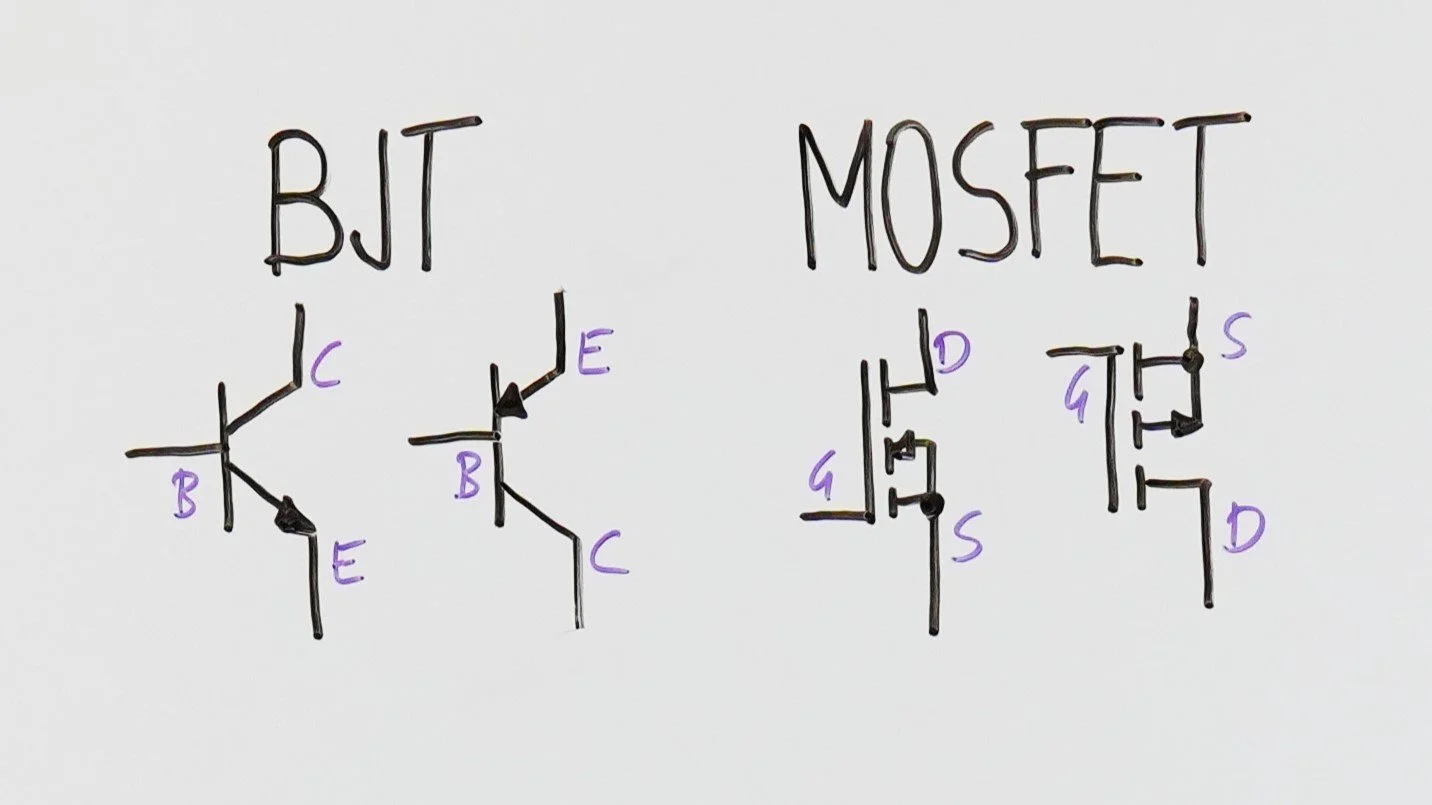 BJT MOSFET
C E D G S
B B G S D
E C